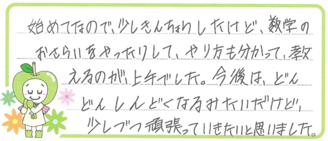 始めてなので、少しきんちょうしたけど、数学の
おさらいをやったりして、やり方も分かって、教
えるのが上手でした。今後は、どん
どんしんどくなるみたいだけど、
少しづつ頑張っていきたいと思いました。